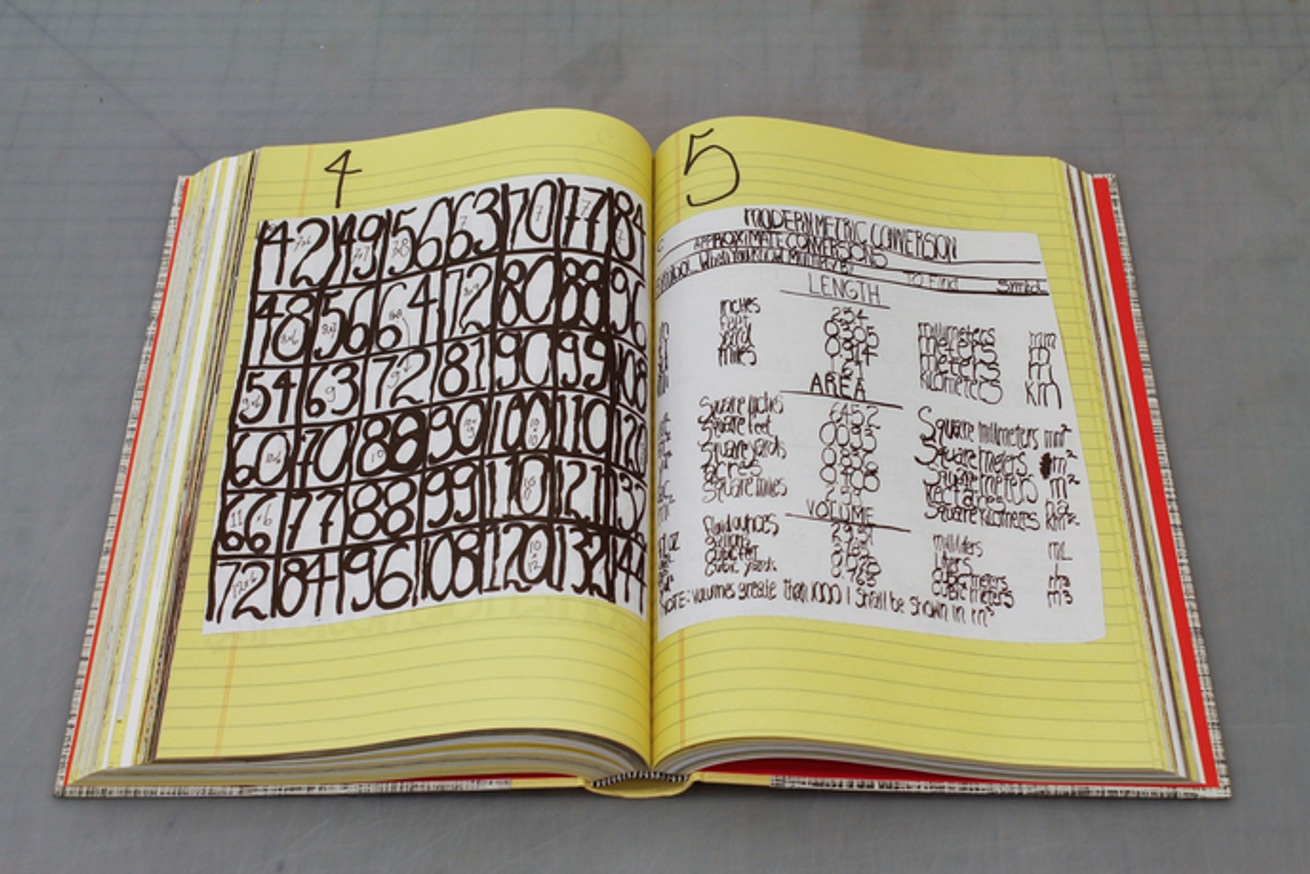 4
42 49 56 63 70 77 84
48 56 64 72 80 88 96
54 63 72 81 90 99 108
60 70 80 90 100 110 120
66 77 88 99 110 121 132
72 84 96 108 120 132 144
5
MODERN METRIC CONVERSION
APPROXIMATE CONVERSIONS
When You Know Multiply BY To Find Symbol
LENGTH
inches 254 millimeters mm
feet 0305 meters m
yard 0914 meters m
miles kilometers km
AREA
Square inches 6452 Square millimeters mm²
Square feet 0093 Square meters m²
Square yards Square meters m²
acres
Square miles Square kilometers km²
VOLUME
fluid ounces milliliters mL
liters
cubic meters m³
cubic yards cubic meters m³
NOTE: volumes greate than 1000 l Shall be Shown in m³